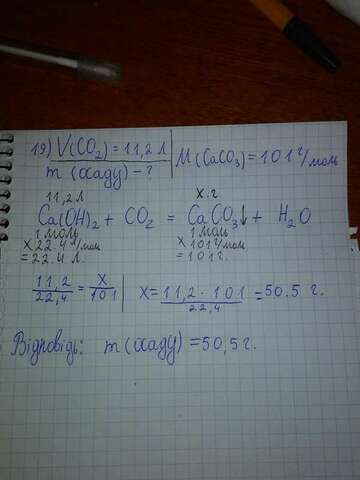 19) V(CO₂) = 11,2 л
m (осаду) - ?
M (CaCO₃) = 101 г/моль
11,2 л
x г
Ca(OH)₂ + CO₂ = CaCO₃↓ + H₂O
1 моль
1 моль
x 22.4 л/моль
x 101 г/моль
= 22.4 л.
= 101 г.
11,2/22,4 = x/101
x = 11,2 · 101/22,4 = 50.5 г.
Відповідь: m (осаду) = 50,5 г.